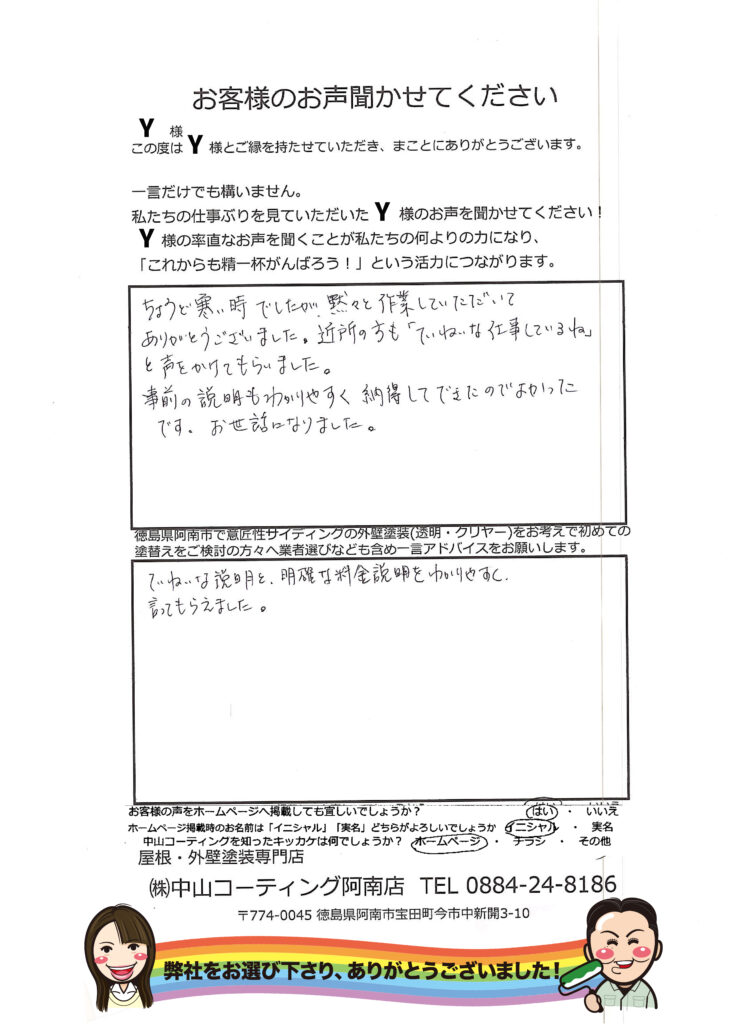 お客様のお声聞かせてください
Y 様
この度は Y 様とご縁を持たせていただき、まことにありがとうございます。
一言だけでも構いません。
私たちの仕事ぶりを見ていただいた Y 様のお声を聞かせてください！
Y 様の率直なお声を聞くことが私たちの何よりの力になり、
「これからも精一杯がんばろう！」という活力につながります。
ちょうど寒い時でしたが、黙々と作業していただいて
ありがとうございました。近所の方も「ていねいな仕事しているね」
と声をかけてもらいました。
事前の説明もわかりやすく納得してできたのでよかった
です。お世話になりました。
徳島県阿南市で意匠性サイディングの外壁塗装(透明・クリヤー)をお考えで初めての
塗替えをご検討の方々へ業者選びなども含め一言アドバイスをお願いします。
ていねいな説明と、明確な料金説明をわかりやすく、
言ってもらえました。
お客様の声をホームページへ掲載しても宜しいでしょうか？ はい ・ いいえ
ホームページ掲載時のお名前は「イニシャル」「実名」どちらがよろしいでしょうか イニシャル ・ 実名
中山コーティングを知ったキッカケは何でしょうか？ ホームページ ・ チラシ ・ その他
屋根・外壁塗装専門店
㈱中山コーティング阿南店 TEL 0884-24-8186
〒774-0045 徳島県阿南市宝田町今市中新開3-10
弊社をお選び下さり、ありがとうございました！